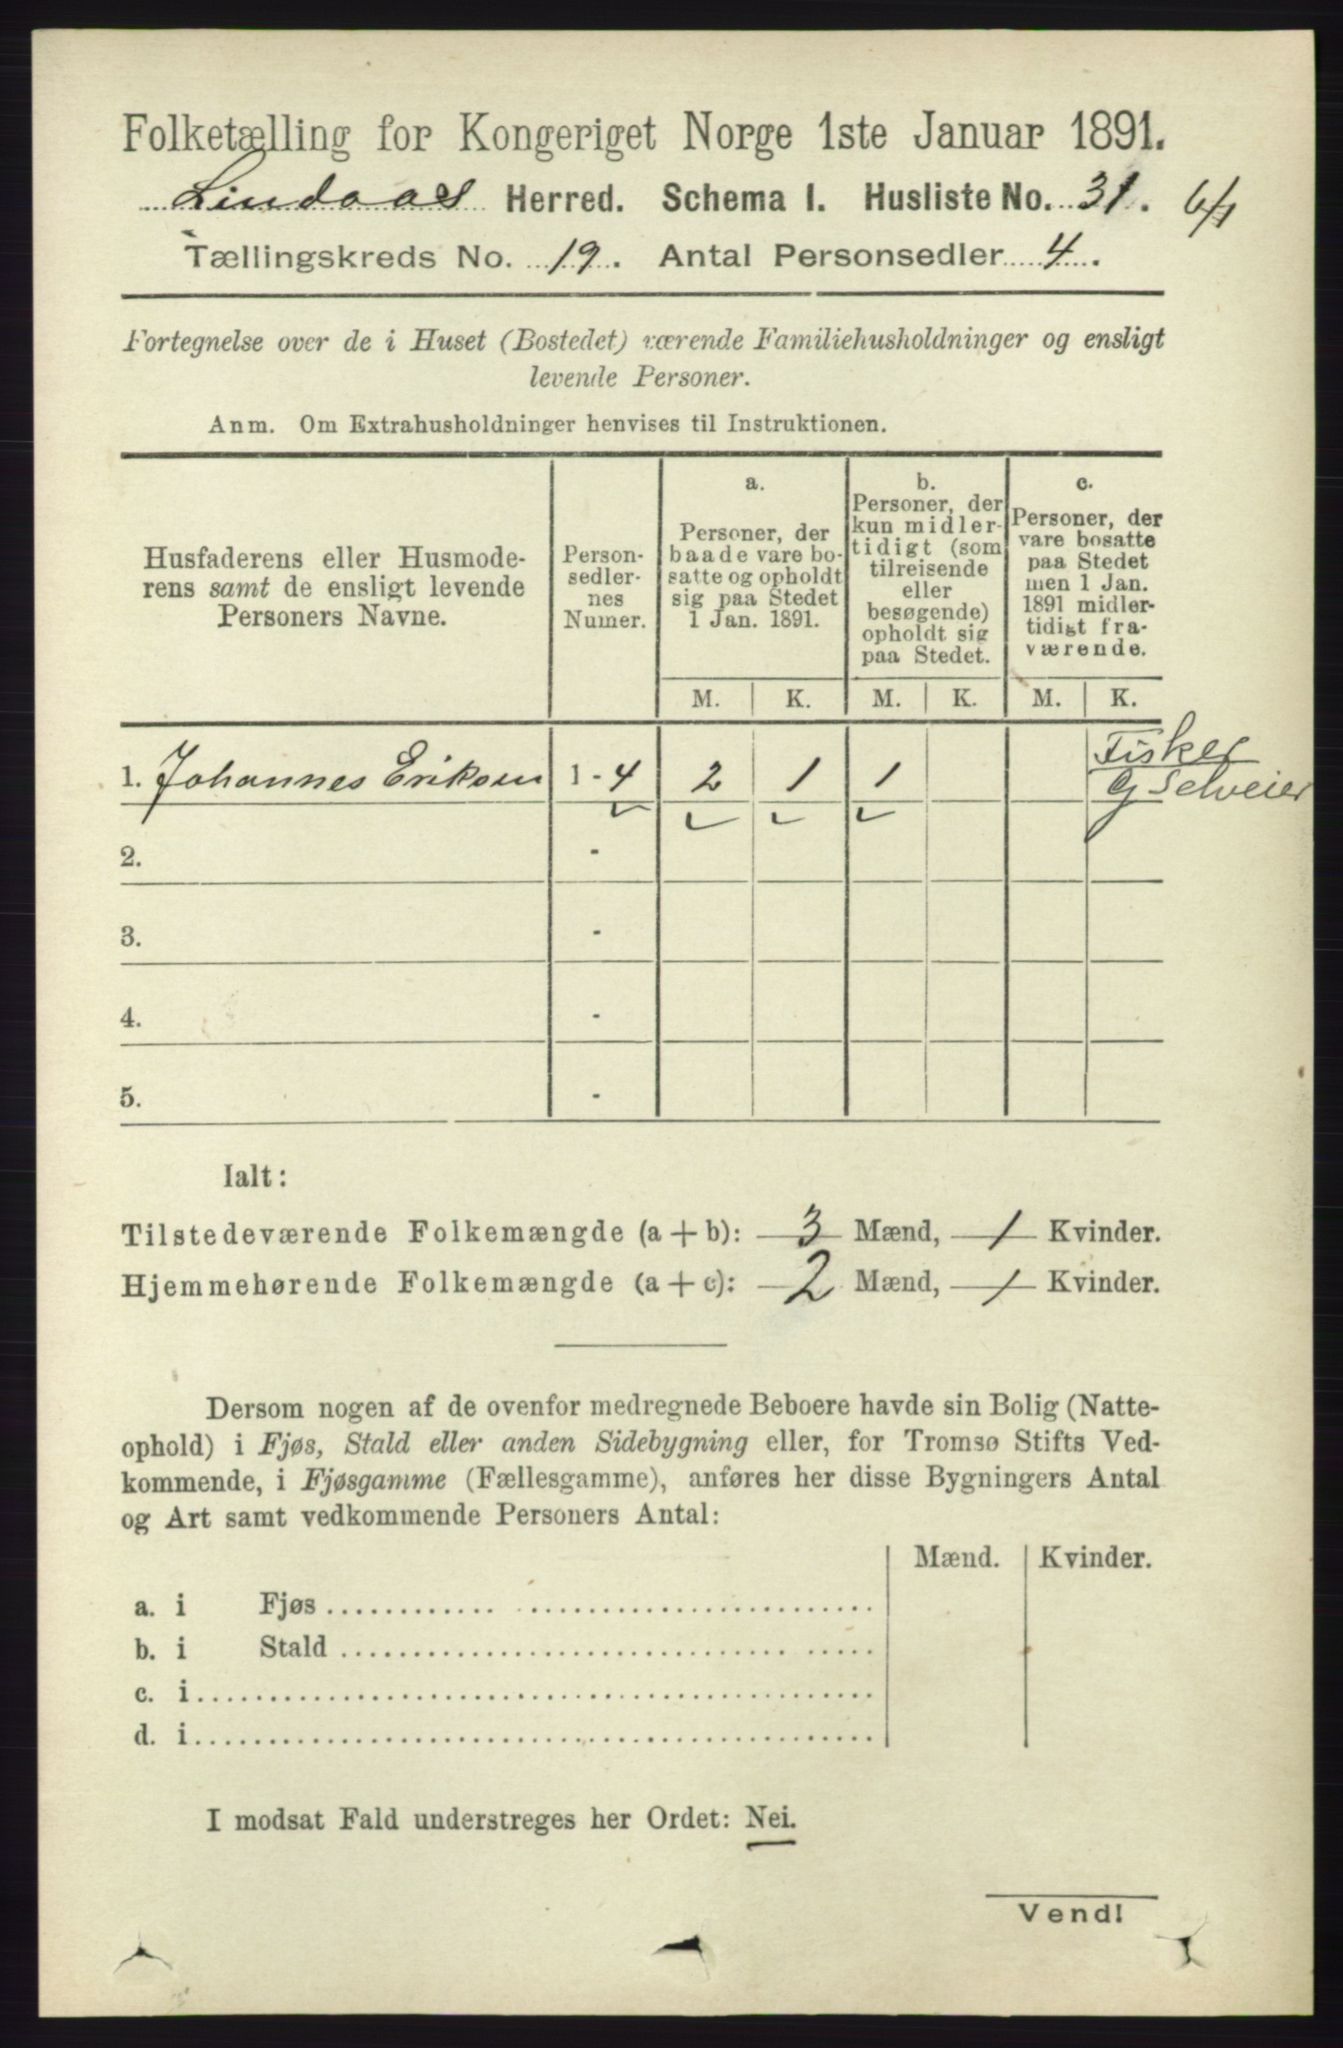 Folketælling for Kongeriget Norge 1ste Januar 1891.
Lindaas Herred. Schema I. Husliste No. 31.
Tællingskreds No. 19. Antal Personsedler 4.
Fortegnelse over de i Huset (Bostedet) værende Familiehusholdninger og ensligt
levende Personer.
Anm. Om Extrahusholdninger henvises til Instruktionen.
Husfaderens eller Husmode-
rens samt de ensligt levende
Personers Navne.
Person-
sedler-
nes
Numer.
a.
Personer, der
baade vare bo-
satte og opholdt
sig paa Stedet
1 Jan. 1891.
b.
Personer, der
kun midler-
tidigt (som
tilreisende
eller
besøgende)
opholdt sig
paa Stedet.
c.
Personer, der
vare bosatte
paa Stedet
men 1 Jan.
1891 midler-
tidigt fra-
værende.
M. K. M. K. M. K.
1. Johannes Eriksen 1 - 4 2 1 1 Fisker
G Selveier
2. -
3. -
4. -
5. -
Ialt:
Tilstedeværende Folkemængde (a + b): 3 Mænd, 1 Kvinder.
Hjemmehørende Folkemængde (a + c): 2 Mænd, 1 Kvinder.
Dersom nogen af de ovenfor medregnede Beboere havde sin Bolig (Natte-
ophold) i Fjøs, Stald eller anden Sidebygning eller, for Tromsø Stifts Ved-
kommende, i Fjøsgamme (Fællesgamme), anføres her disse Bygningers Antal
og Art samt vedkommende Personers Antal:
Mænd. Kvinder.
a. i Fjøs
b. i Stald
c. i
d. i
I modsat Fald understreges her Ordet: Nei.
Vend!